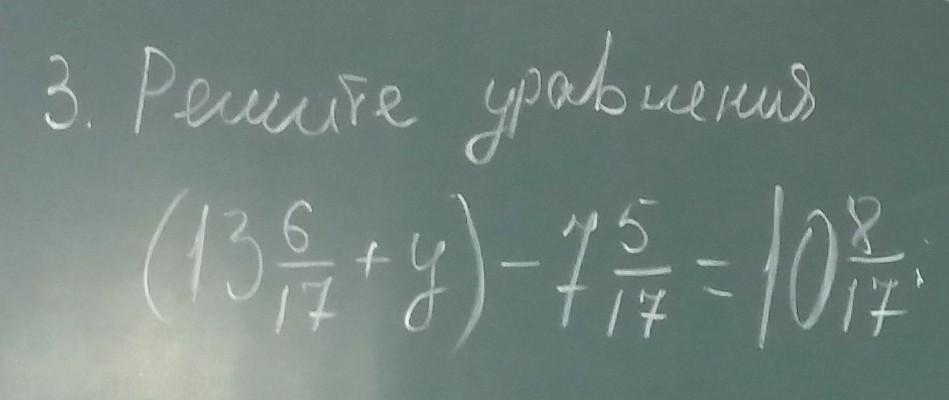 3. Решите уравнения
(13 6/17 + y) - 7 5/17 = 10 8/17;